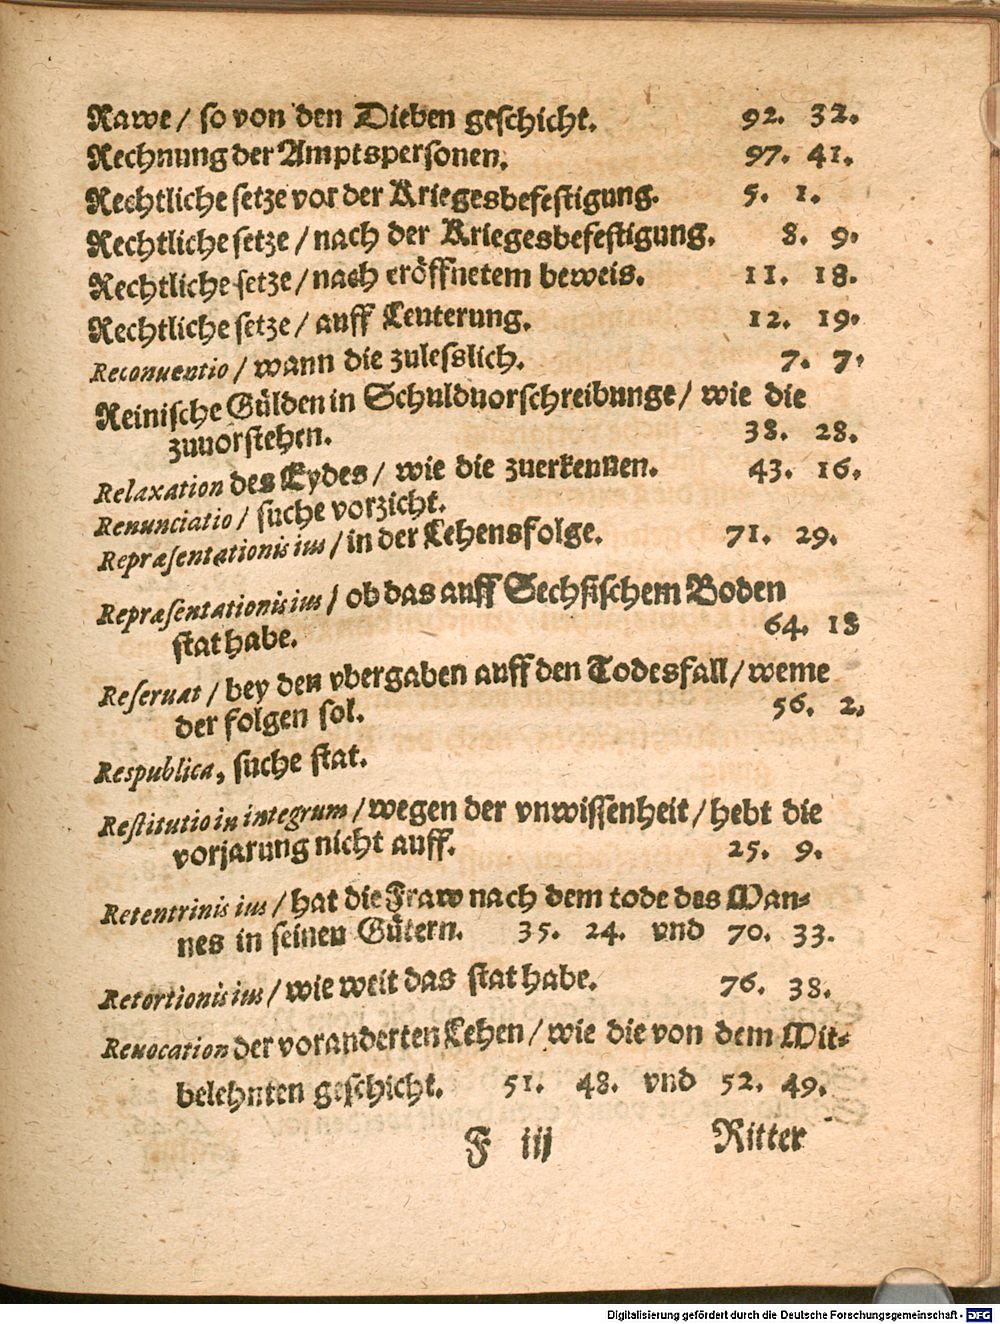 Rawe / so von den Dieben geschicht. 92. 32.
Rechnung der Amptspersonen. 97. 41.
Rechtliche setze vor der Kriegesbefestigung. 5. 1.
Rechtliche setze / nach der Kriegesbefestigung. 8. 9.
Rechtliche setze / nach eröffnetem beweis. 11. 18.
Rechtliche setze / auff Leuterung. 12. 19.
Reconuentio / wann die zulesslich. 7. 7.
Reinische Gülden in Schulduorschreibunge / wie die
zuuorstehen. 38. 28.
Relaxation des Eydes / wie die zuerkennen. 43. 16.
Renunciatio / suche vorzicht.
Repræsentationis ius / in der Lehensfolge. 71. 29.
Repræsentationis ius / ob das auff Sechsischem Boden
stat habe. 64. 18
Reseruat / bey den vbergaben auff den Todesfall / weme
der folgen sol. 56. 2.
Respublica, suche stat.
Restitutio in integrum / wegen der vnwissenheit / hebt die
vorjarung nicht auff. 25. 9.
Retentrinis ius / hat die Fraw nach dem tode des Man⸗
nes in seinen Gütern. 35. 24. vnd 70. 33.
Retortionis ius / wie weit das stat habe. 76. 38.
Reuocation der voranderten Lehen / wie die von dem Mit⸗
belehnten geschicht. 51. 48. vnd 52. 49.
F iij Ritter
Digitalisierung gefördert durch die Deutsche Forschungsgemeinschaft - DFG